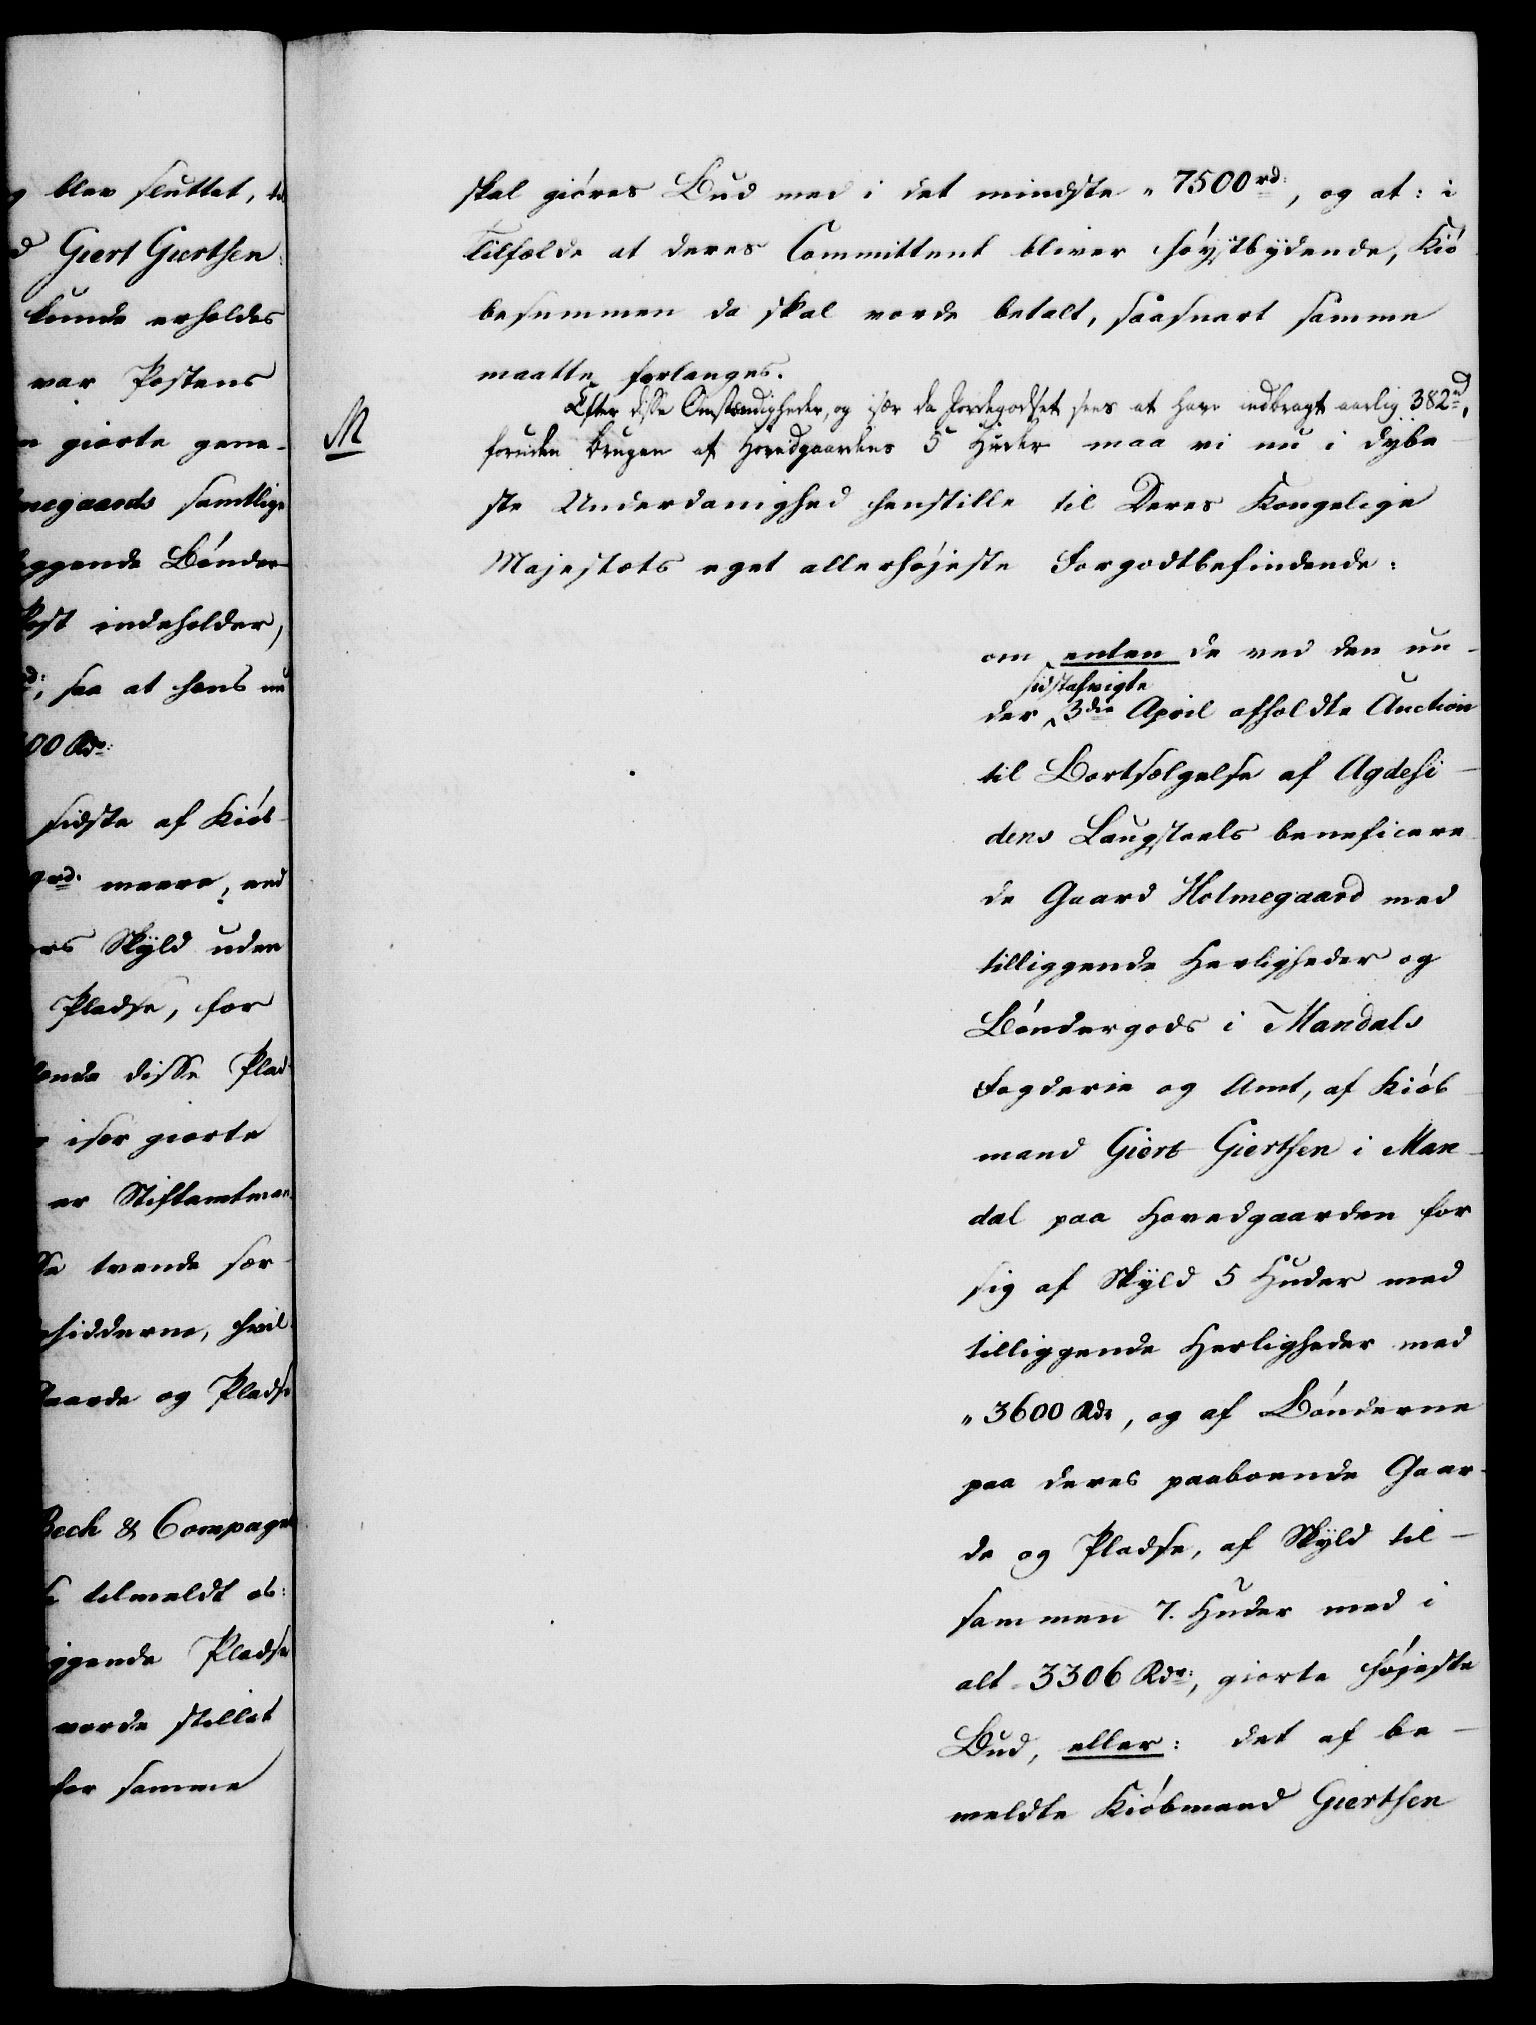 g blev sluttet,
d Giert Giertsen
kunde erholdes
var Postens
n giorte gene-
megaards samtlige
ggende Bönder-
Post indeholder,
saa at hans
00 Rdr:
sidste af Kiöb-
9rd. meere, end
ers Skÿld uden
Pladse, for
disse Plad-
især giorte
er Stiftamtman-
tvende sær-
sidderne, hvil-
Gaarde og Pladse
Bech & Compagn
tilmeldt os:
iggende Pladse
vorde stillet
for samme
skal giöres Bud med i det mindste „7500rd:, og at: i
Tilfælde at deres Committent bliver höystbydende, Kiö-
besummen da skal vorde betalt, saasnart samme
maatte forlanges.
Efter disse Omstændigheder, og især da Jordegodset sees at have indbragt aarlig 382rd,
M
foruden Brugen af Hovedgaardens 5 Huder maa vi nu i dybe-
ste Underdanighed henstille til Deres Kongelige
Majestæts eget allerhöjeste Forgodtbefindende:
om enten de ved den un-
sidstafvigte
der 3die April afholdte Auction
til Bortsælgelse af Agdesi-
dens Laugstoels beneficere-
de Gaard Holmegaard med
tilliggende Herligheder og
Böndergods i Mandals
Fogderie og Amt, af Kiöb-
mand Giert Giertsen i Man-
dal paa Hovedgaarden for
sig af Skÿld 5 Huder med
tilliggende Herligheder med
„3600 Rdr, og af Bönderne
paa deres paaboende Gaar-
de og Pladse, af Skÿld til-
sammen 7. Huder med i
alt „3306 Rdr:, giorte höjeste
Bud, eller: det af be-
meldte Kiöbmand Giertsen